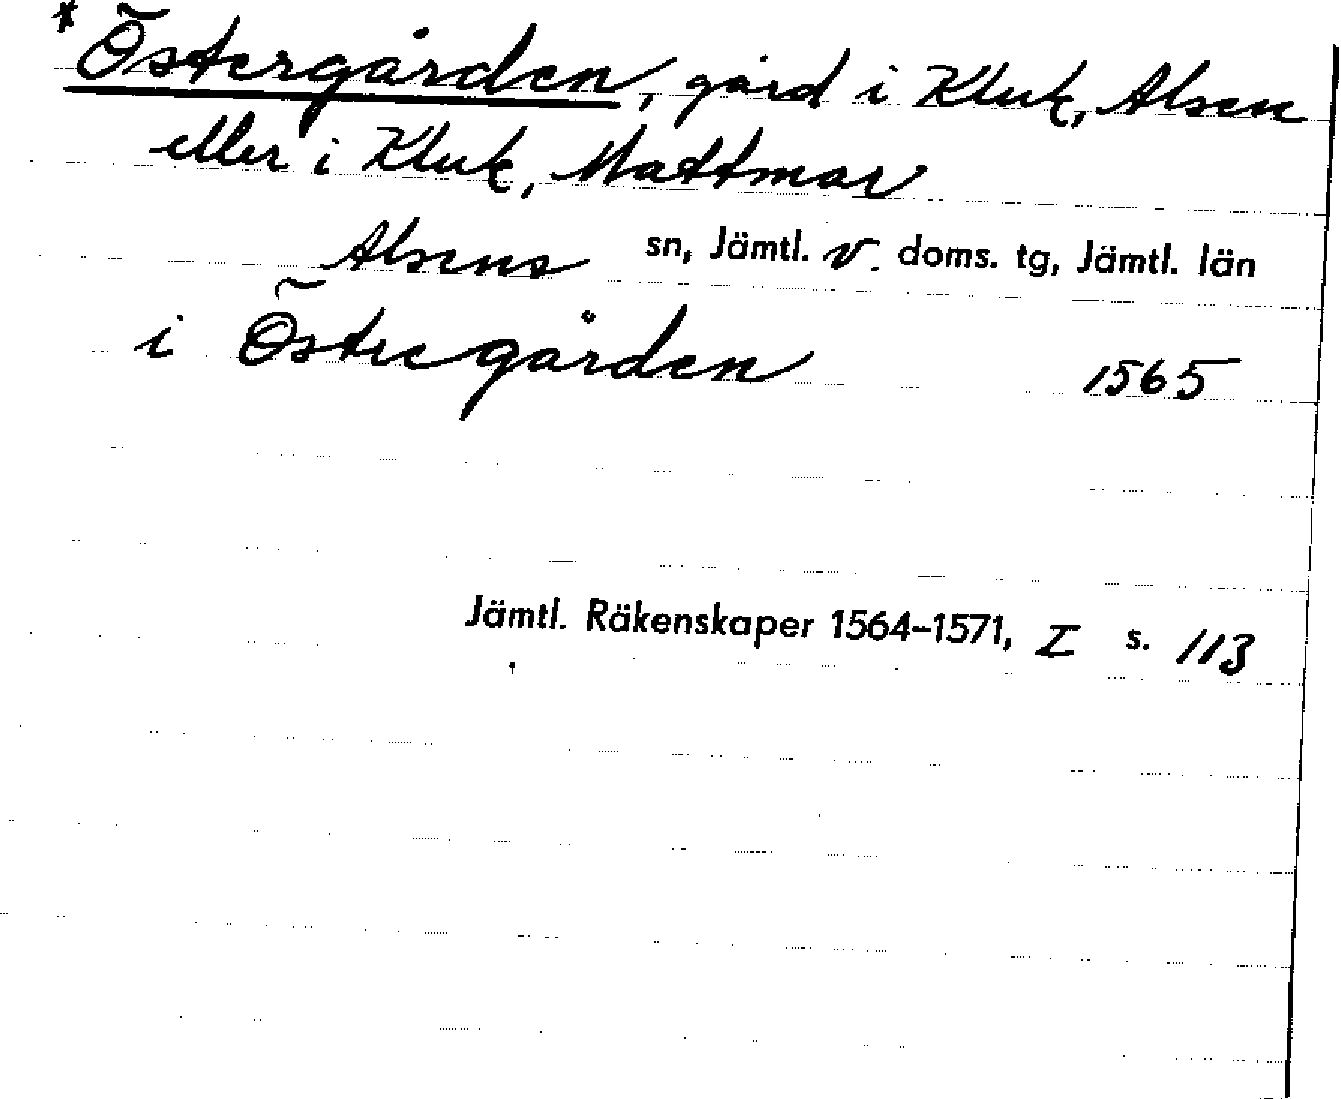 * Östergården, gård i Kluk, Alsen
eller i Kluk, Mattmar
Alsens sn, Jämtl. v. doms. tg, Jämtl. län
i Östregården 1565
Jämtl. Räkenskaper 1564–1571, I s. 113